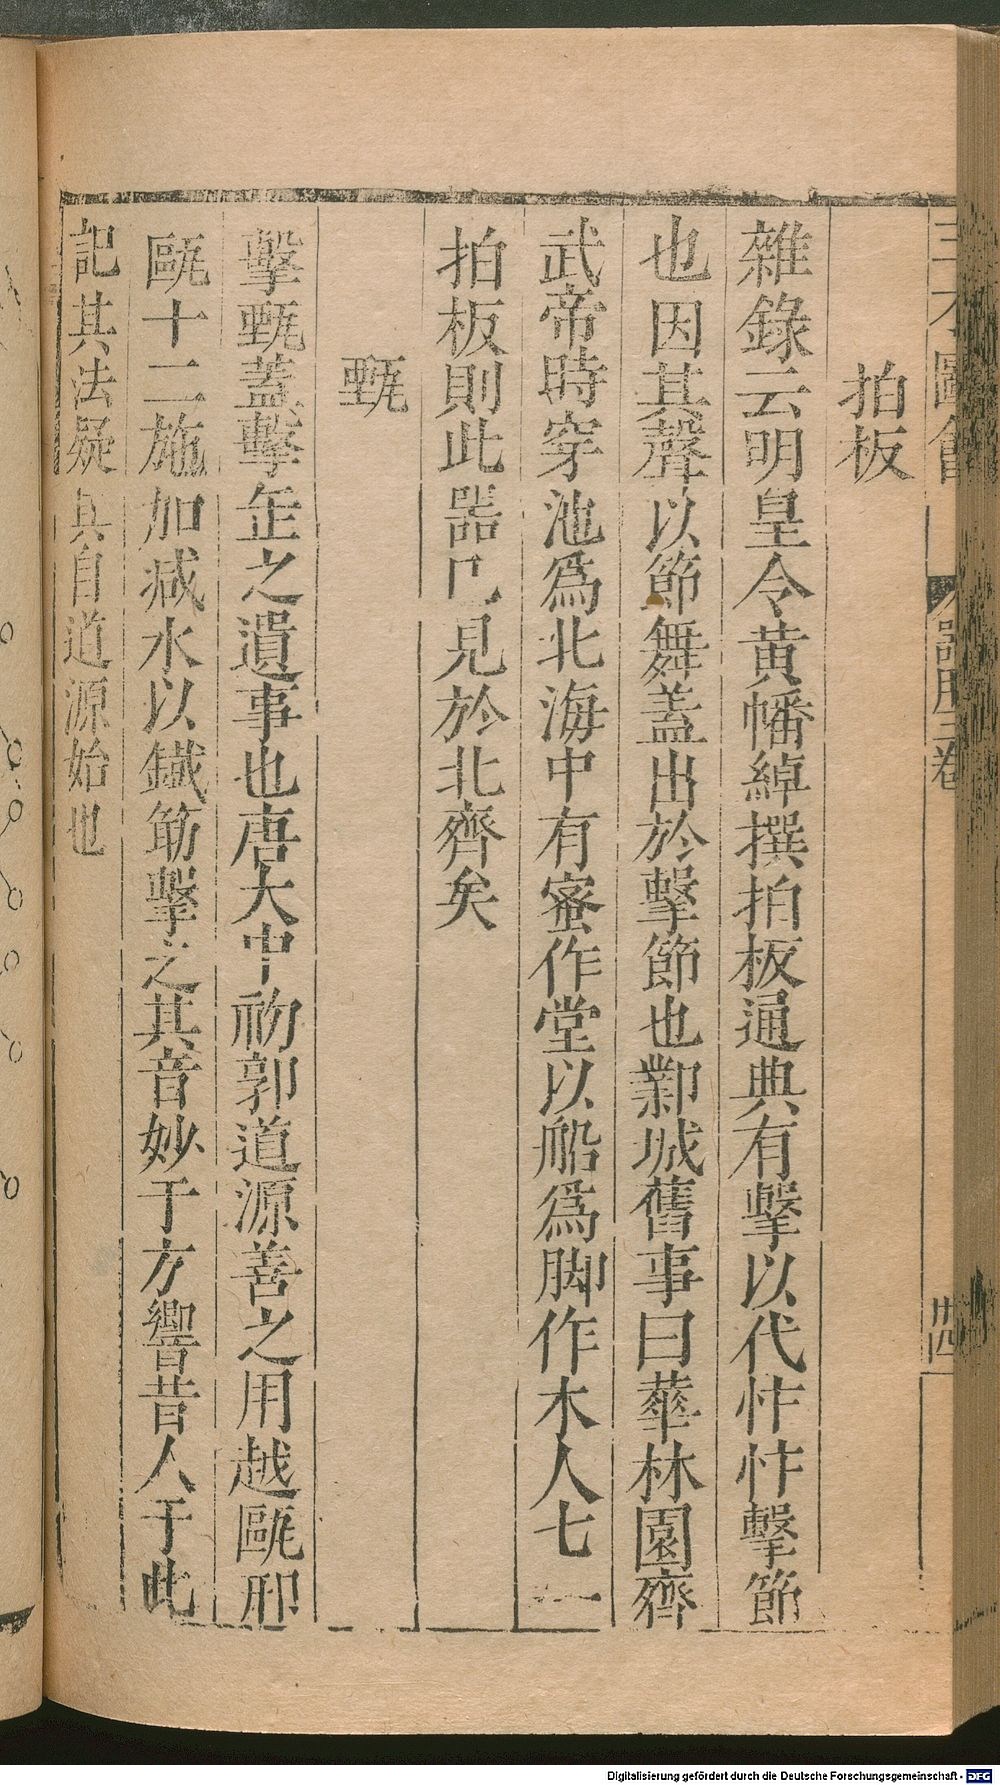 三才圖會 器用三卷 廿四
拍板
雜錄云明皇令黃幡綽撰拍板通典有擊以代忭忭擊節
也因其聲以節舞蓋出於擊節也鄴城舊事曰華林園齊
武帝時穿池爲北海中有蜜作堂以船爲脚作木人七一
拍板則此器已見於北齊矣
甄
擊甄蓋擊缶之遺事也唐大中初郭道源善之用越甌邢
甌十二施加減水以鐵筯擊之其音妙于方響昔人于此
記其法疑其自道源始也
Digitalisierung gefördert durch die Deutsche Forschungsgemeinschaft - DFG